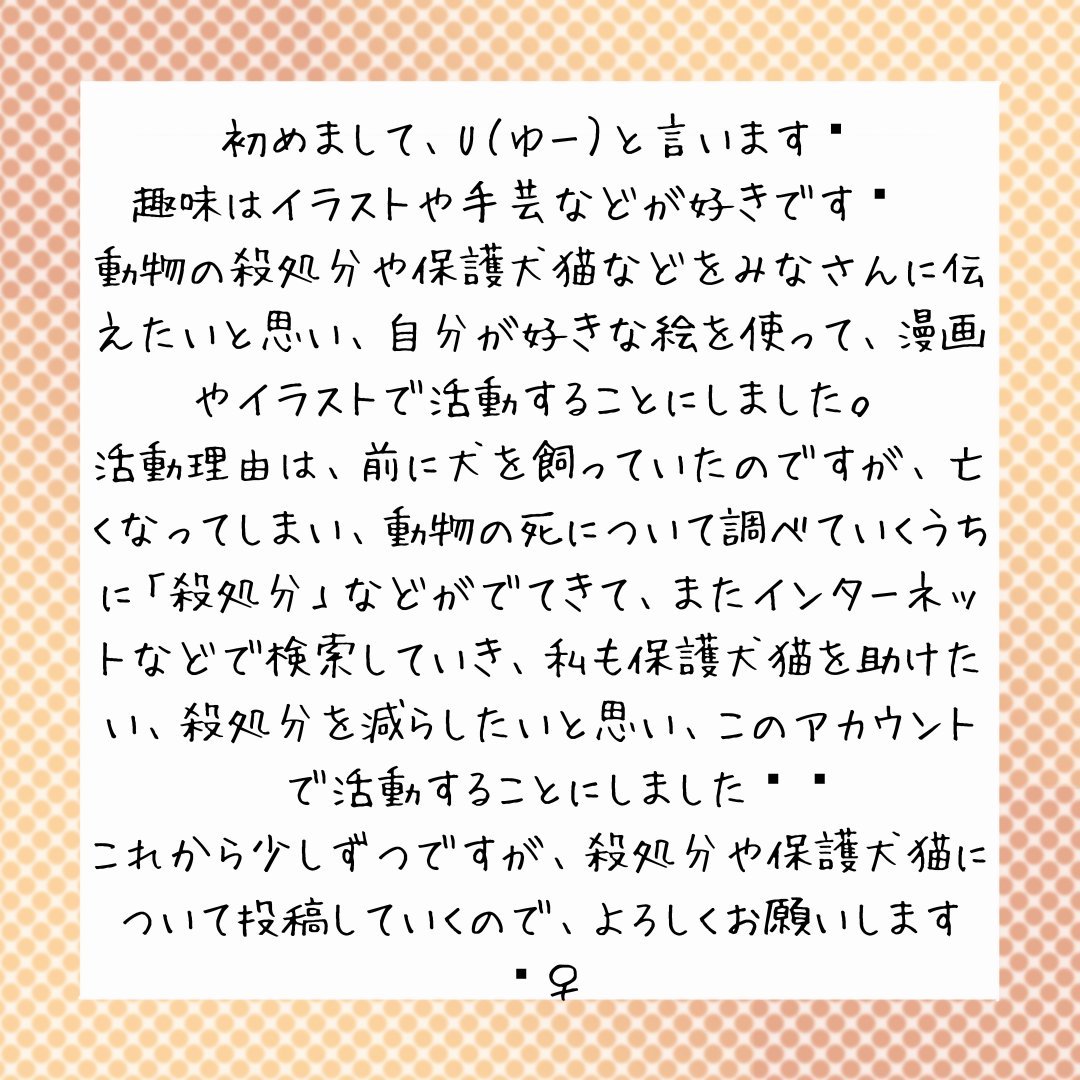 初めまして、U(ゆー)と言います▪
趣味はイラストや手芸などが好きです▪
動物の殺処分や保護犬猫などをみなさんに伝
えたいと思い、自分が好きな絵を使って、漫画
やイラストで活動することにしました。
活動理由は、前に犬を飼っていたのですが、亡
くなってしまい、動物の死について調べていくうち
に「殺処分」などがでてきて、またインターネッ
トなどで検索していき、私も保護犬猫を助けた
い、殺処分を減らしたいと思い、このアカウント
で活動することにしました▪▪
これから少しずつですが、殺処分や保護犬猫に
ついて投稿していくので、よろしくお願いします
▪♀